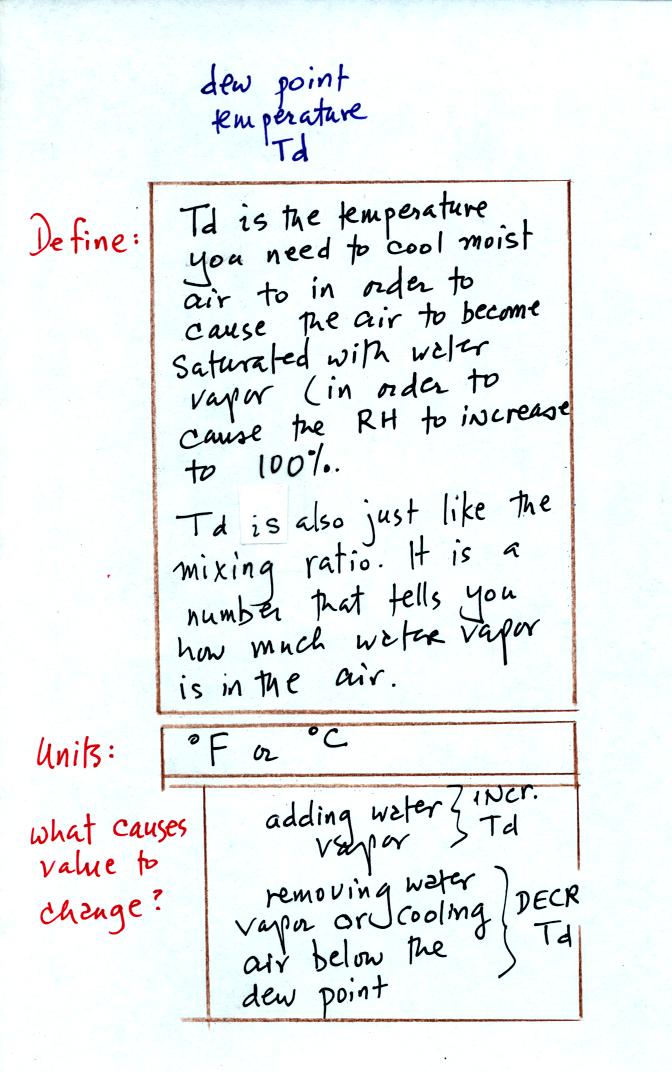 dew point
temperature
Td
Define:
Td is the temperature
you need to cool moist
air to in order to
cause the air to become
saturated with water
vapor (in order to
cause the RH to increase
to 100%.
Td is also just like the
mixing ratio. It is a
number that tells you
how much water vapor
is in the air.
Units:
°F or °C
what causes
value to
change?
adding water
vapor
} INCR.
Td
removing water
vapor or cooling
air below the
dew point
} DECR
Td